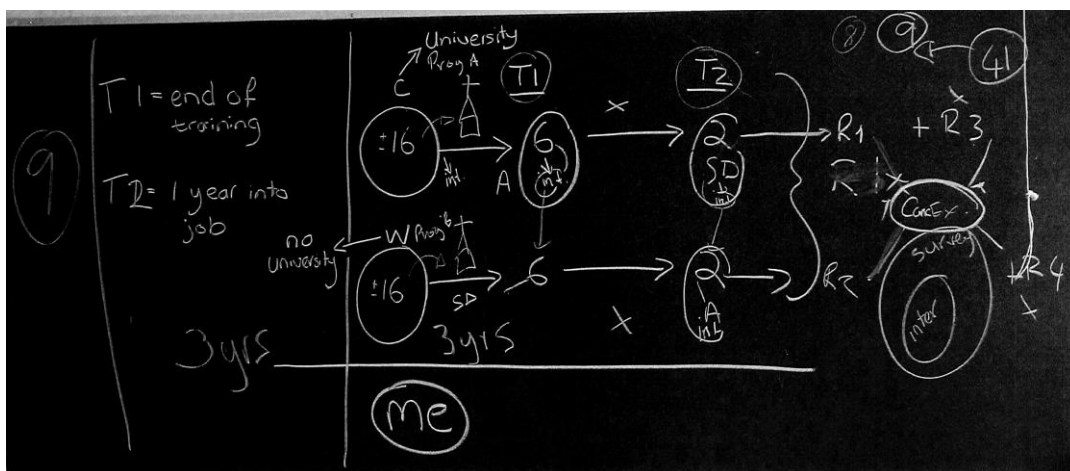 9
T1 = end of
training
T2 = 1 year into
job
3 yrs
University
Prog A
C
T1
T2
±16
int
A
6
int
x
2
SD
int
R1
+ R3
x
8
9
41
no
University
W
Prog B
±16
SD
3 yrs
6
x
2
A
int
R2
R4
x
ConcEx.
survey
inter
me